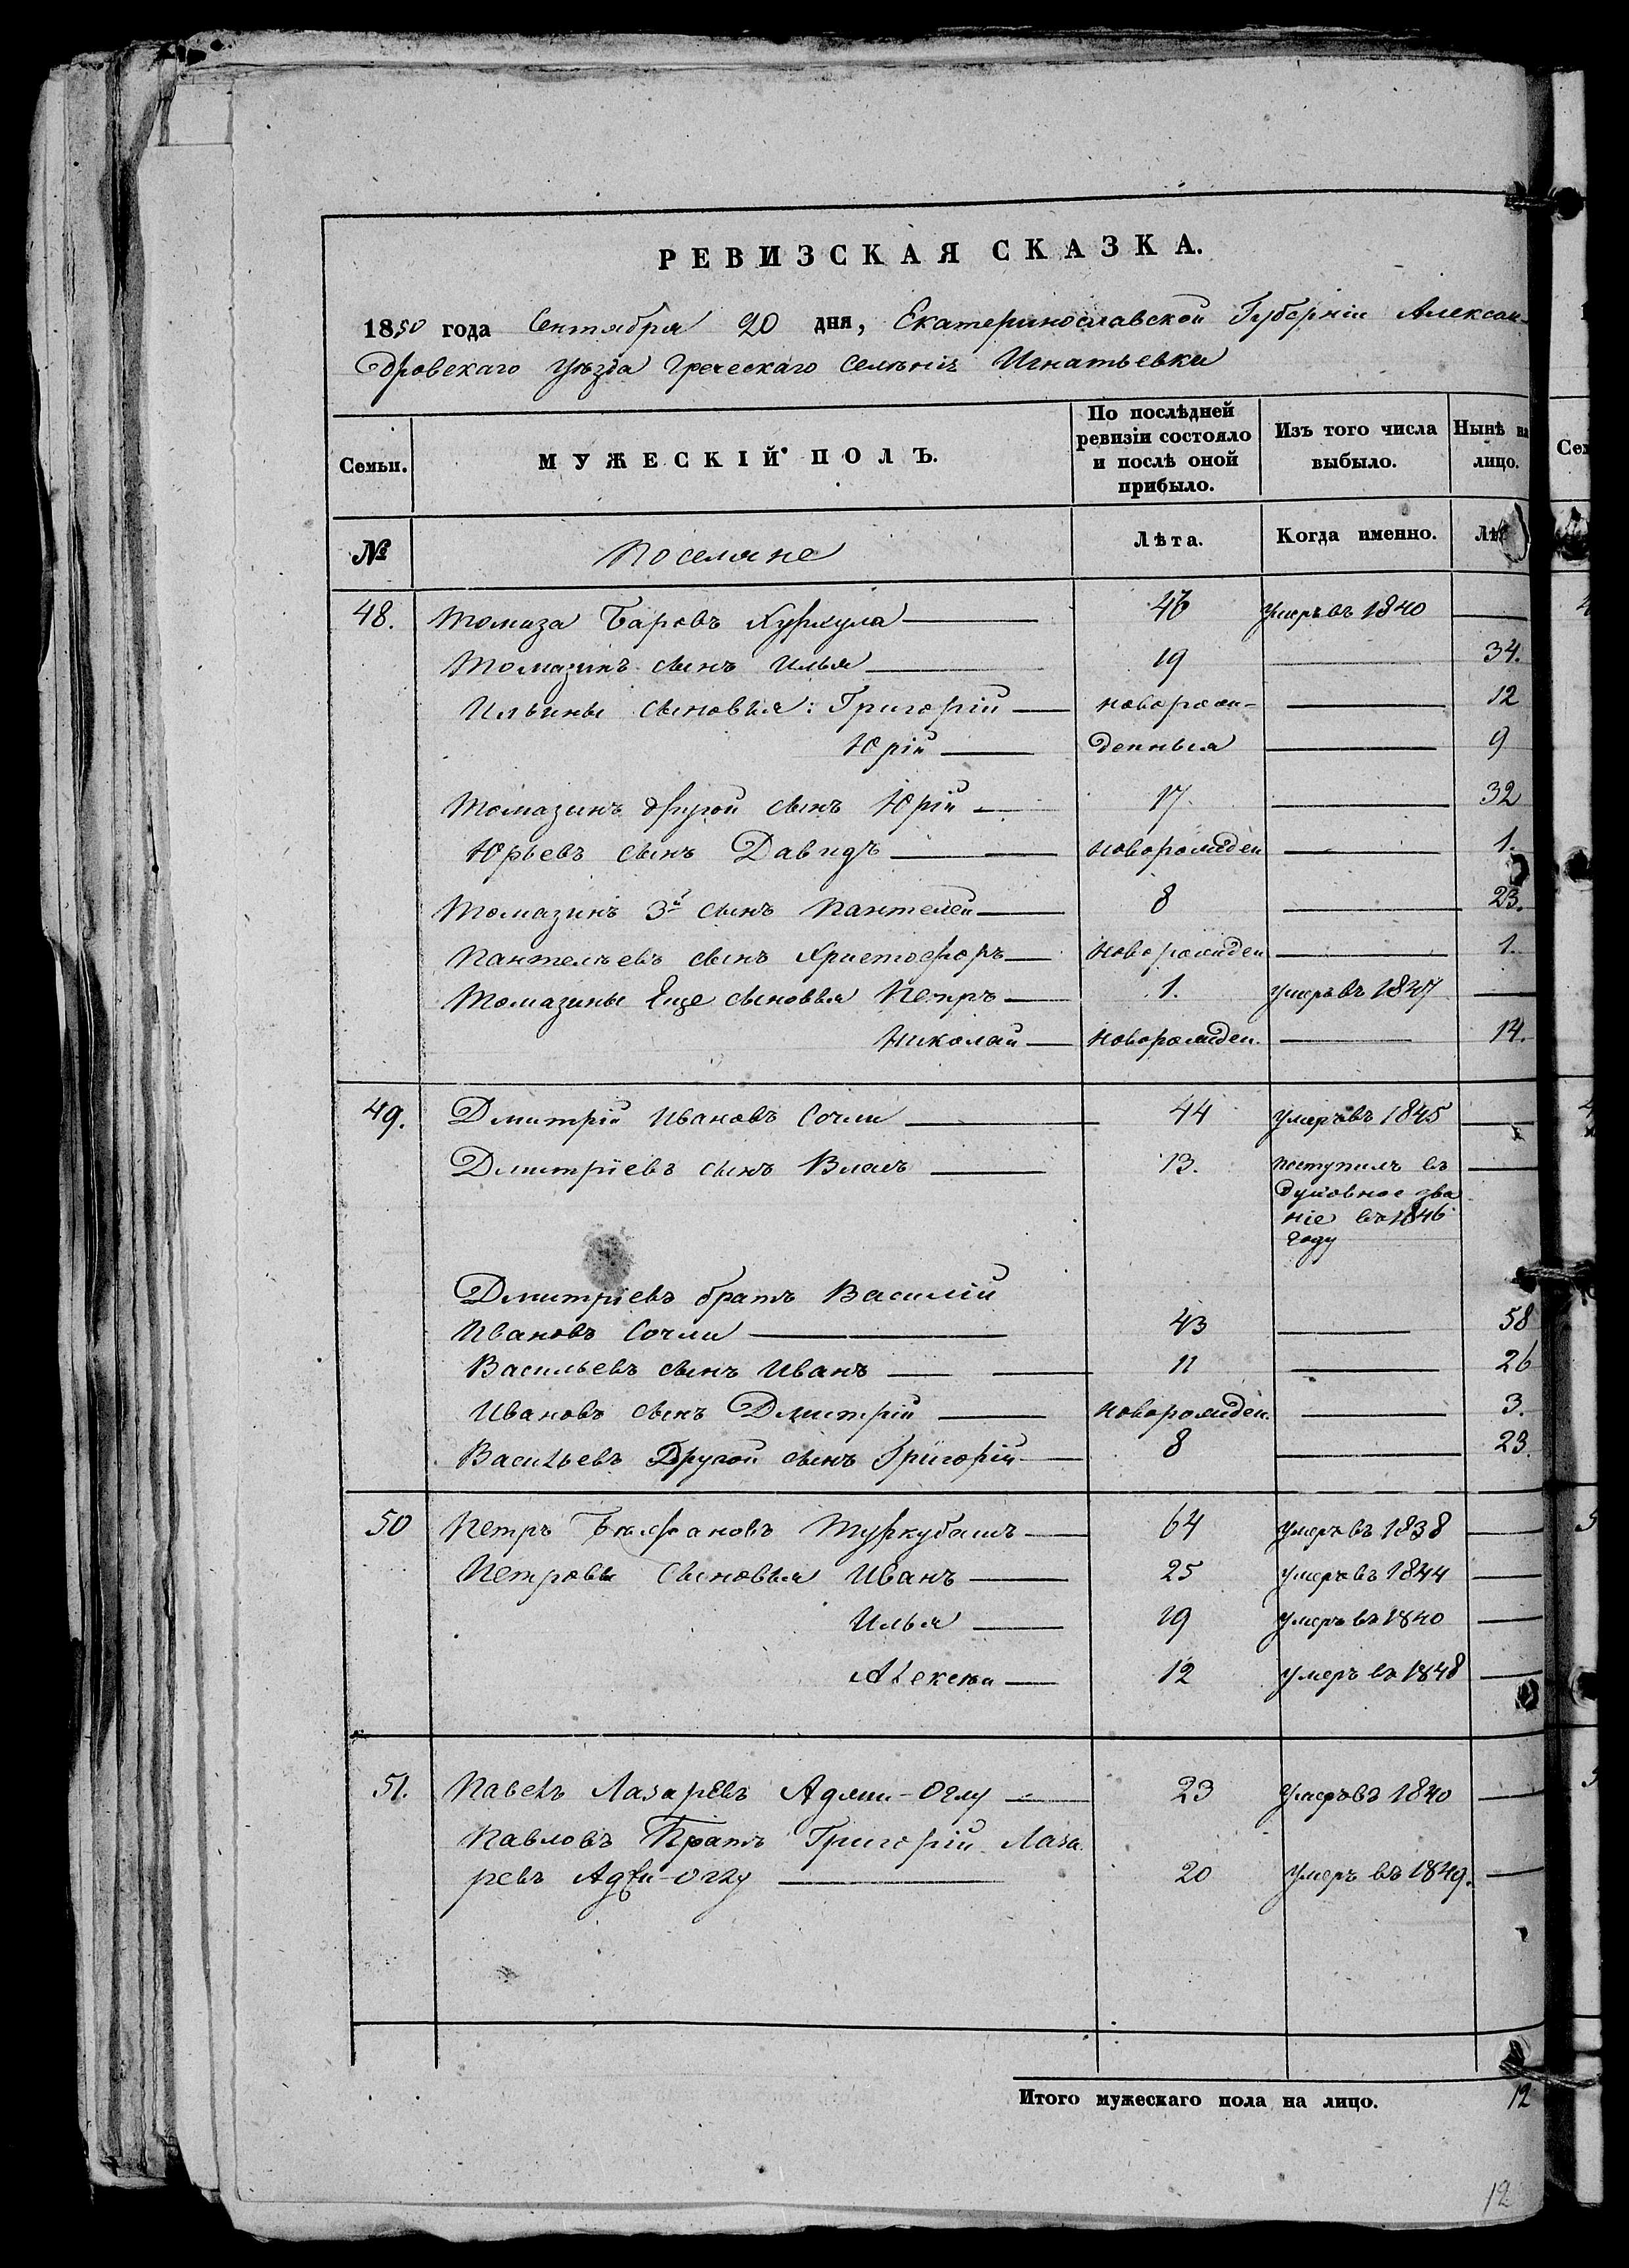 РЕВИЗСКАЯ СКАЗКА.
1850 года Сентября 20 дня, Екатеринославской Губерніи Алексан-
дровскаго уѣзда Греческаго селенія Игнатьевки
Семьи. МУЖЕСКІЙ ПОЛЪ. По послѣдней ревизіи состояло и послѣ оной прибыло. Изъ того числа выбыло. Нынѣ на лицо.
№ Поселяне Лѣта. Когда именно. Лѣт
48. Томаза Куркула 46 умеръ въ 1840
Томазинъ сынъ Илья 19 34.
Ильины сыновья: Григорій новорож- 12
Юрій денныя 9
Томазинъ другой сынъ Юрій 17. 32
Юрьевъ сынъ Давидъ новорожден 1.
Томазинъ 3й сынъ Пантелей 8 23.
Пантелѣевъ сынъ Христофоръ новорожден 1.
Томазины Еще сыновья Петръ 1. умеръ въ 1847
Николай новорожден. 14.
49. Дмитрій Ивановъ Сочли 44 умеръ въ 1845
Дмитріевъ сынъ Власъ 13. поступилъ въ
духовное зва
ніе въ 1846
году
Дмитріевъ братъ Василій
Ивановъ Сочли 43 58
Васильевъ сынъ Иванъ 11 26
Ивановъ сынъ Дмитрій новорожден. 3.
Васильевъ Другой сынъ Григорій 8 23.
50 Петръ Туркубашъ 64 умеръ въ 1838
Петровы Сыновья Иванъ 25 умеръ въ 1844
Илья 19 умеръ въ 1840
Алексѣй 12 умеръ въ 1848
51. Павелъ Лазаревъ Аджи-Оглу 23 умеръ въ 1840
Павловъ Братъ Григорій Лаза
ревъ Аджи-Оглу 20 умеръ въ 1849.
Итого мужескаго пола на лицо. 12
12